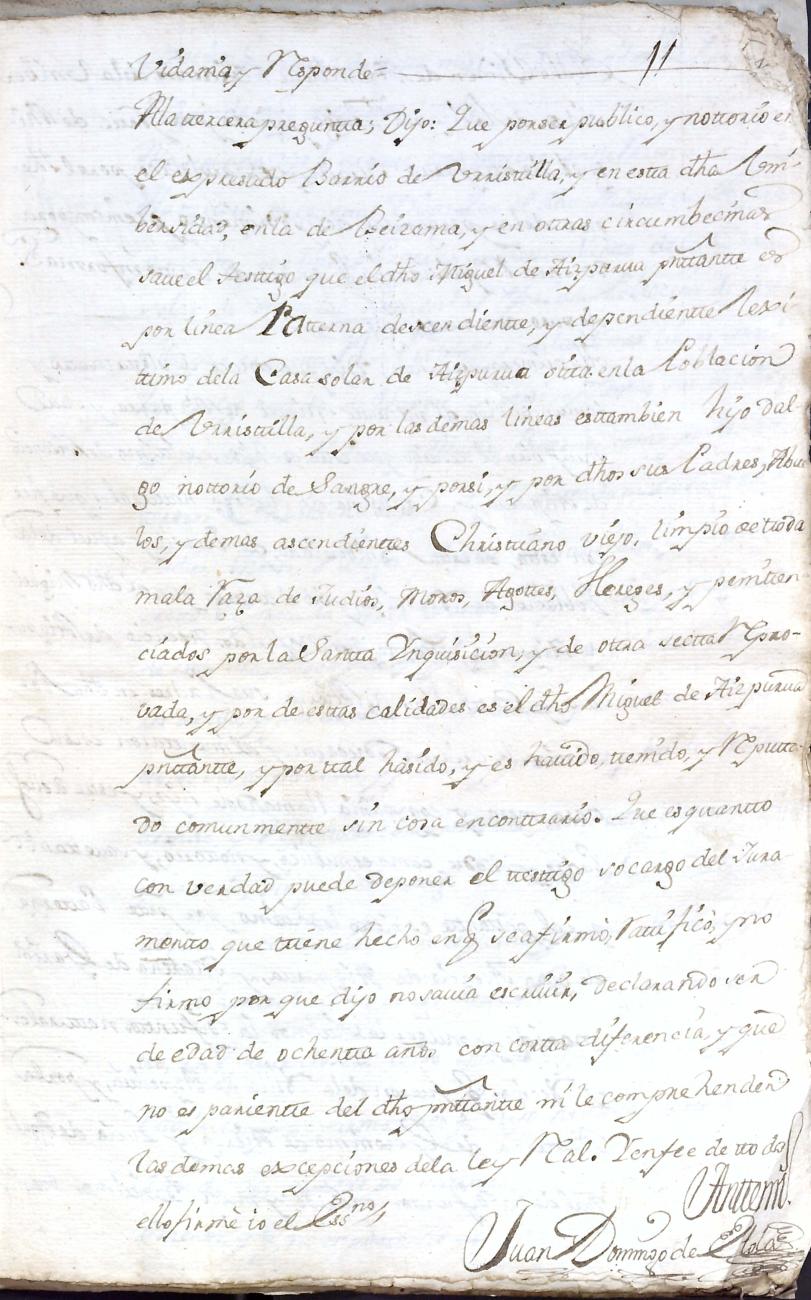 11
Vidama, y Responde=
A la tercera pregunta; Dijo: Que por ser publico, y nottorio en
el expresado Barrio de Vrristilla, y en esta dha Vni-
bersidad, en la de Beizama, y en ottras circumbecinas
save el Testtigo que el dho Miguel de Aizpurua pnttantte es
por linea Patterna descendientte, y dependientte Lexi-
ttimo dela Casa solar de Aizpurua sitta en la Poblacion
de Vrristilla, y por las demas lineas esttambien hijo dal-
go nottorio de Sangre, y por si, y por dhos sus Padres, Abue
los, y demas ascendienttes Christiano viejo, limpio de ttoda
mala raza de Judios, Moros, Agottes, Hereges, y penitten
ciados por la Santta Ynquisicion, y de ottra sectta Repro-
vada, y por de esttas calidades es el dho Miguel de Aizpurua
pnttantte, y por ttal hàsido, y es havido, ttenido, y Reputta
do comunmentte sin cosa en conttrario. Que es quantto
con verdad puede deponer el ttesttigo so cargo del Jura-
mentto que ttiene hecho en q se afirmò, rattificò, y no
firmo por que dijo no savia escrivir, declarando ser
de edad de ochentta años con cortta diferencia, y que
no es parientte del dho pnttantte ni le comprehenden
las demas excepciones dela ley Real. Yenfee de ttodo
ello firmè io el Essno
Anttemi.
Juan Domingo de